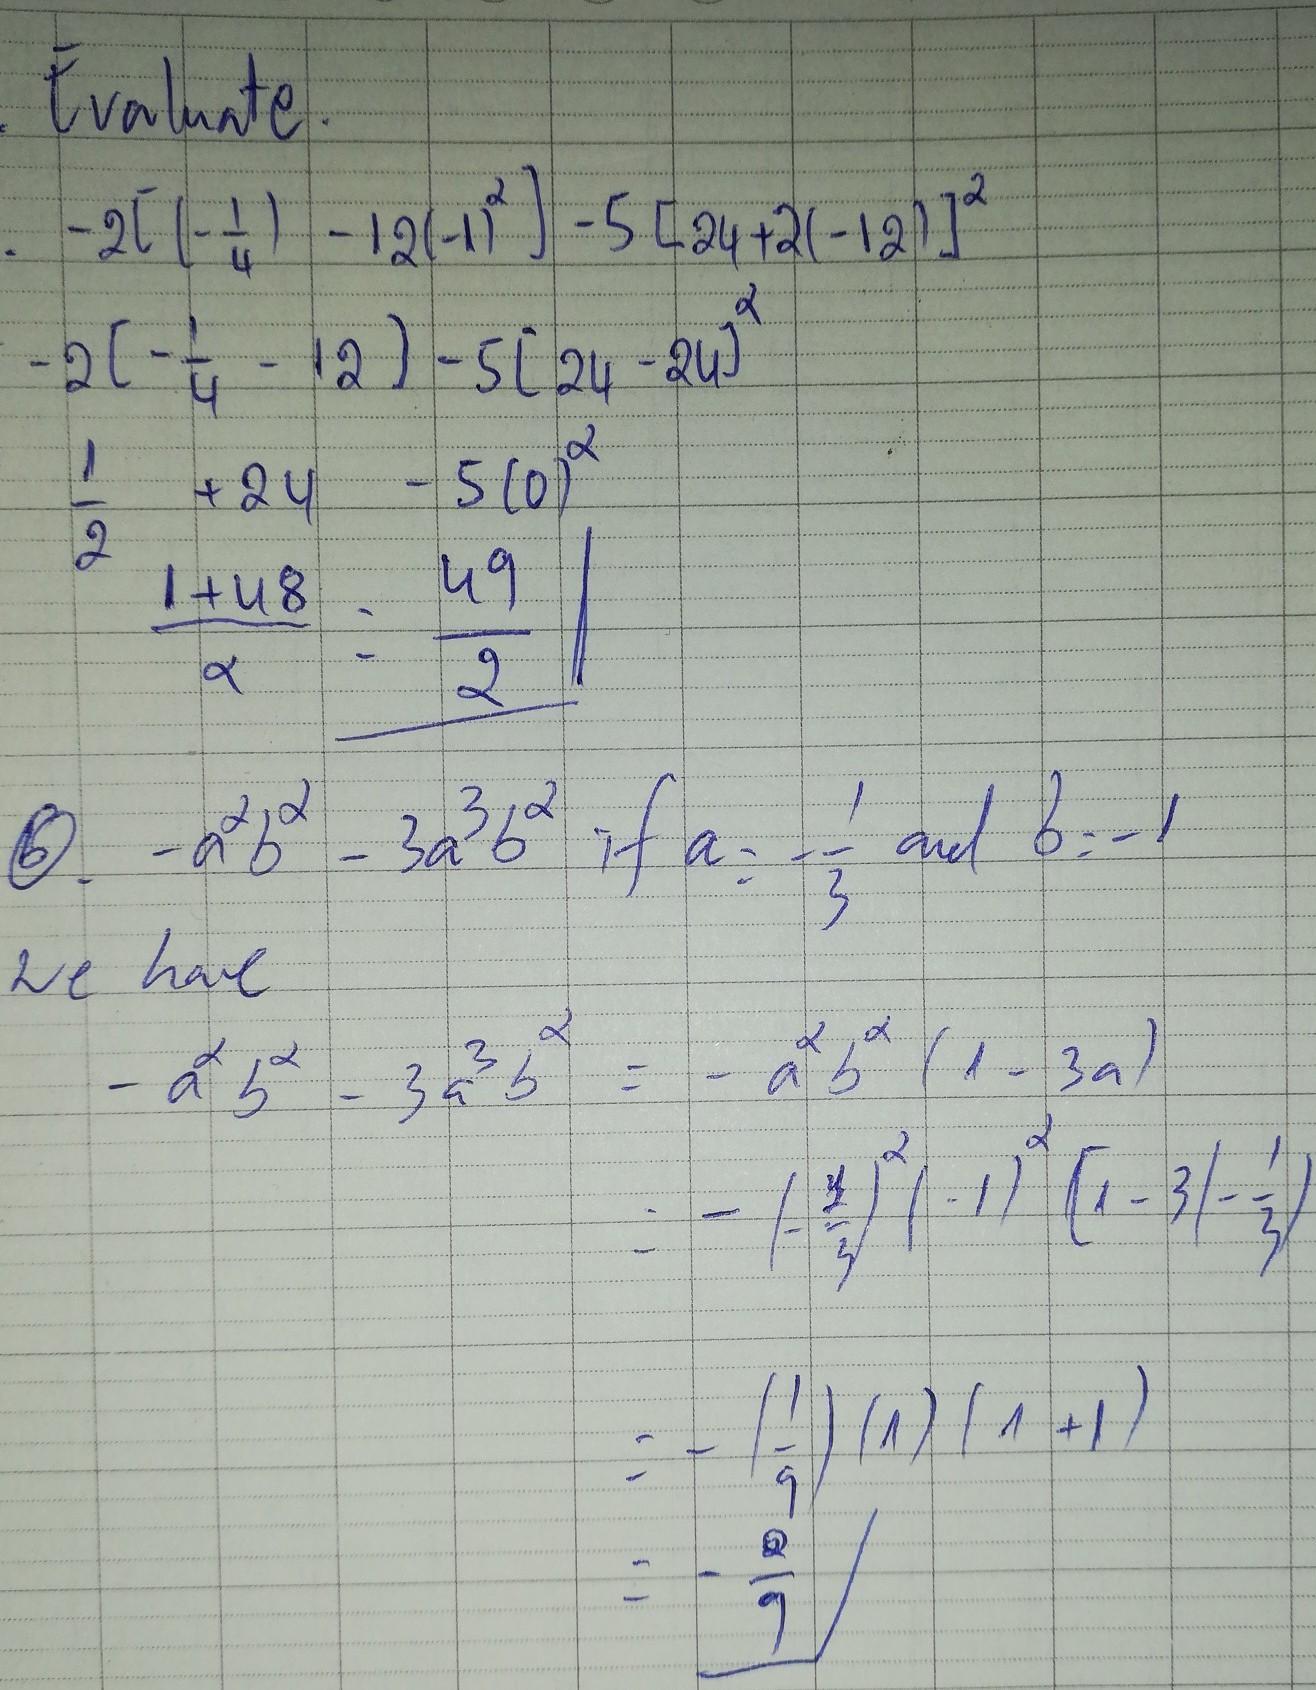 . Evaluate.
. -2[(-1/4) - 12(-1)²] - 5[24+2(-12)]²
-2[-1/4 - 12] - 5[24 - 24]²
1/2 + 24 - 5(0)²
(1+48)/2 = 49/2
⑥. -a²b² - 3a³b² if a = -1/3 and b = -1
we have
-a²b² - 3a³b² = -a²b²(1 - 3a)
= -(-1/3)²(-1)²[1 - 3(-1/3)
= -(1/9)(1)(1+1)
= -2/9